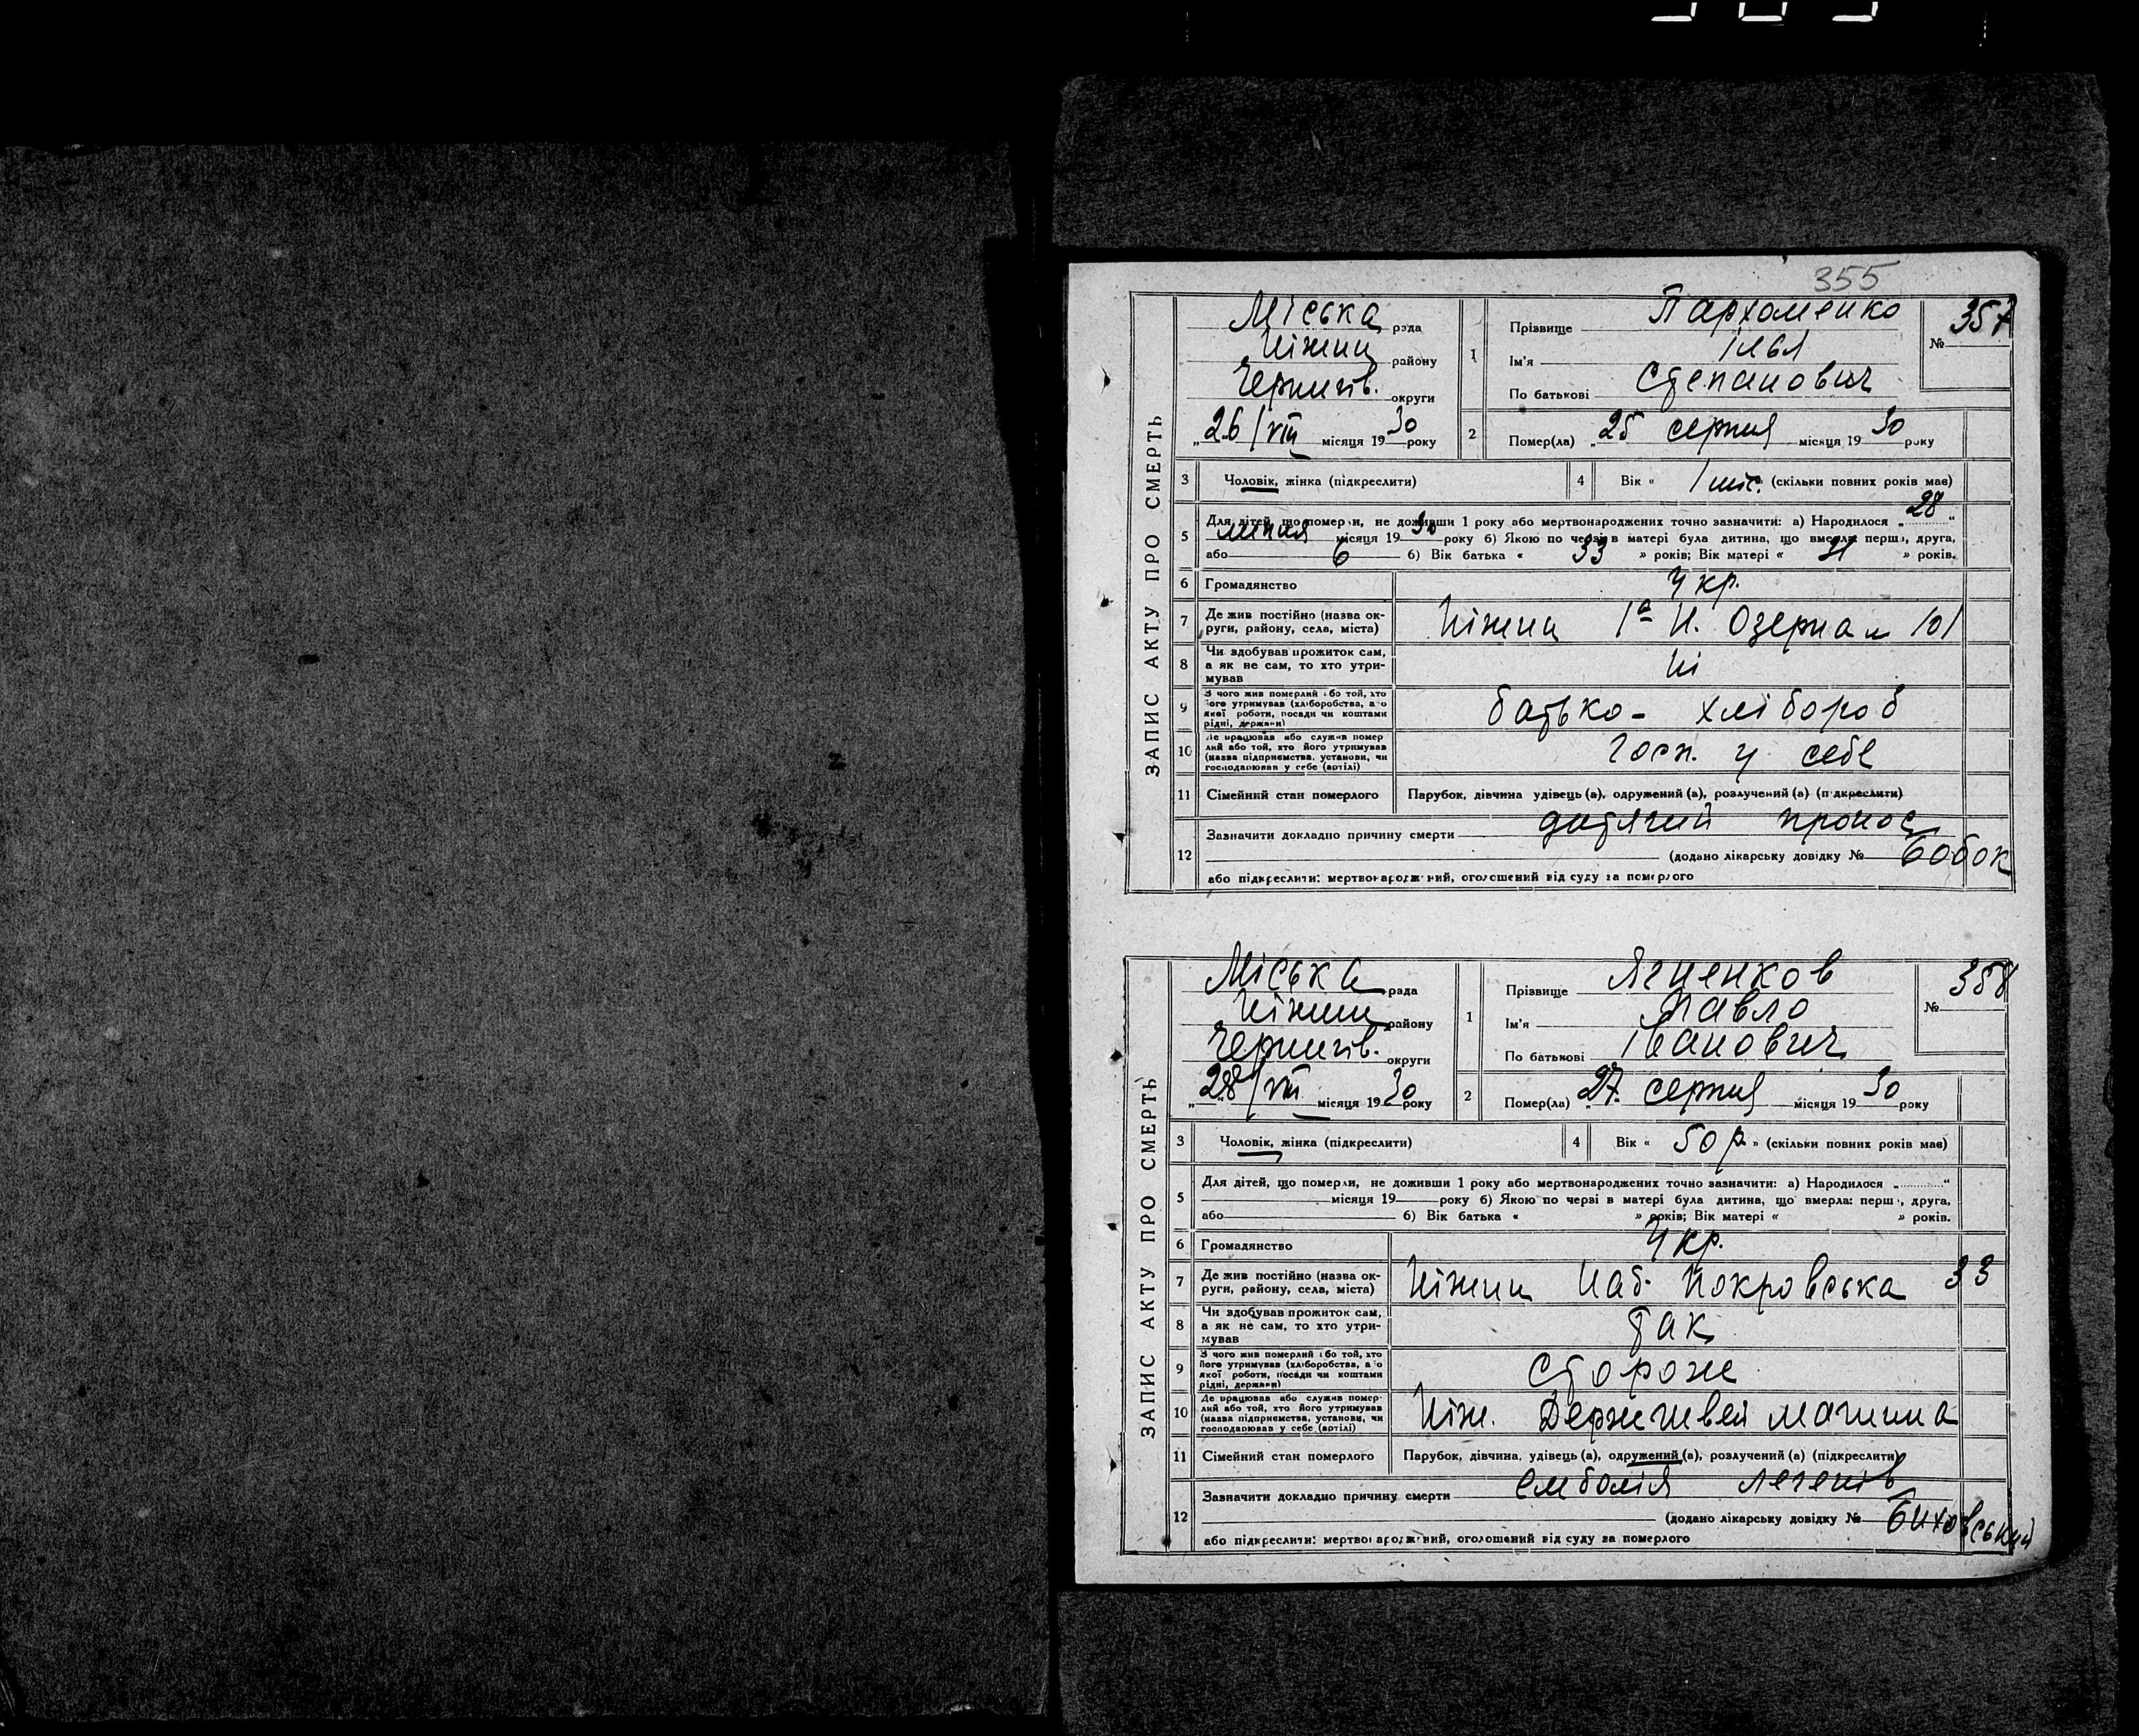 355
ЗАПИС АКТУ ПРО СМЕРТЬ
Міська рада
Ніжин району
Чернигів. округи
„26/VIII місяця 1930 року
1 Прізвище Пархоменко
Ім'я Ілья
По батькові Степанович
№ 357
2 Помер(ла) „25 серпня місяця 1930 року
3 Чоловік, жінка (підкреслити)
4 Вік « 1 міс. (скільки повних років має)
5 Для дітей, що померли, не доживши 1 року або мертвонароджених точно зазначити: а) Народилося „28“
липня місяця 1930 року б) Якою по черзі в матері була дитина, що вмерла: перша, друга,
або 6 б) Вік батька « 33 » років; Вік матері « 31 » років.
6 Громадянство Укр.
7 Де жив постійно (назва ок-
руги, району, села, міста) Ніжин 1а Н. Озерна 101
8 Чи здобував прожиток сам,
а як не сам, то хто утри-
мував Ні
9 З чого жив померлий або той, хто
його утримував (хліборобства, або
якої роботи, посади чи коштами
рідні, держави) батько - хлібороб
10 Де працював або служив помер
лий або той, хто його утримував
(назва підприємства, установи, чи
господарював у себе (артілі) Госп. у себе
11 Сімейний стан померлого Парубок, дівчина удівець (а), одружений (а), розлучений (а) (підкреслити)
12 Зазначити докладно причину смерти дитячий пронос
(додано лікарську довідку № Бобок
або підкреслити: мертвонароджений, оголошений від суду за померлого
ЗАПИС АКТУ ПРО СМЕРТЬ
Міська рада
Ніжин району
Чернигів. округи
„28/VIII місяця 1930 року
1 Прізвище Ягненков
Ім'я Павло
По батькові Іванович
№ 358
2 Помер(ла) „27. серпня місяця 1930 року
3 Чоловік, жінка (підкреслити)
4 Вік « 50 р. » (скільки повних років має)
5 Для дітей, що померли, не доживши 1 року або мертвонароджених точно зазначити: а) Народилося „ “
місяця 19 року б) Якою по черзі в матері була дитина, що вмерла: перша, друга,
або б) Вік батька « » років; Вік матері « » років.
6 Громадянство Укр.
7 Де жив постійно (назва ок-
руги, району, села, міста) Ніжин Наб. Покровська 33
8 Чи здобував прожиток сам,
а як не сам, то хто утри-
мував так
9 З чого жив померлий або той, хто
його утримував (хліборобства, або
якої роботи, посади чи коштами
рідні, держави) сторож
10 Де працював або служив помер-
лий або той, хто його утримував
(назва підприємства, установи, чи
господарював у себе (артілі) Ніж. Держшвеймашина
11 Сімейний стан померлого Парубок, дівчина, удівець (а), одружений (а), розлучений (а) (підкреслити)
12 Зазначити докладно причину смерти емболія легенів
(додано лікарську довідку № Биховський
або підкреслити: мертвонароджений, оголошений від суду за померлого